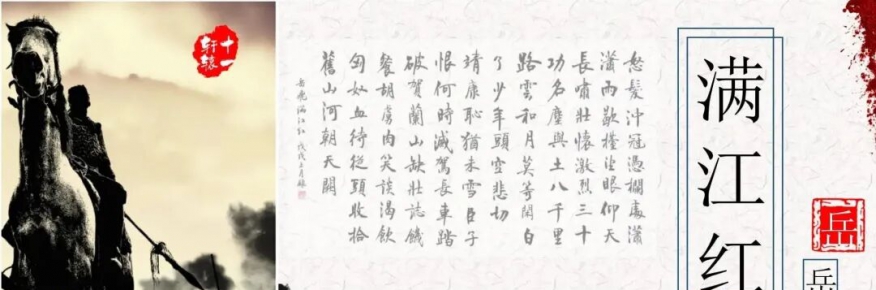 满江红
岳
岳
怒髮沖冠憑欄處瀟
瀟雨歇擡望眼仰天
長嘯壯懷激烈三十
功名塵與土八千里
路雲和月莫等閒白
了少年頭空悲切
靖康恥猶未雪臣子
恨何時滅駕長車踏
破賀蘭山缺壯誌饑
餐胡虜肉笑談渴飲
匈奴血待從頭收拾
舊山河朝天闕
岳飛滿江紅
十一
轩辕